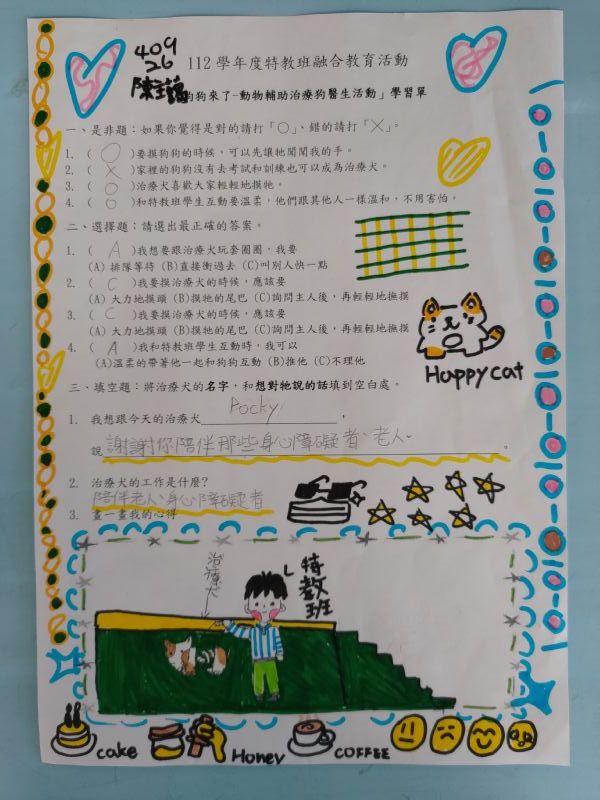 409
26
112 學年度特教班融合教育活動
狗狗來了-動物輔助治療狗醫生活動」學習單
一、是非題:如果你覺得是對的請打「○」、錯的請打「×」。
1. ( ○ )要摸狗狗的時候,可以先讓牠聞聞我的手。
2. ( × )家裡的狗狗沒有去考試和訓練也可以成為治療犬。
3. ( ○ )治療犬喜歡大家輕輕地摸牠。
4. ( ○ )和特教班學生互動要溫柔,他們跟其他人一樣溫和,不用害怕。
二、選擇題:請選出最正確的答案。
1. ( A )我想要跟治療犬玩套圈圈,我要
(A) 排隊等待 (B)直接衝過去 (C)叫別人快一點
2. ( C )我要摸治療犬的時候,應該要
(A) 大力地摸頭 (B)摸牠的尾巴 (C)詢問主人後,再輕輕地撫摸
3. ( C )我要摸治療犬的時候,應該要
(A) 大力地摸頭 (B)摸牠的尾巴 (C)詢問主人後,再輕輕地撫摸
4. ( A )我和特教班學生互動時,我可以
(A)溫柔的帶著他一起和狗狗互動 (B)推他 (C)不理他
Happy cat
三、填空題:將治療犬的名字,和想對牠說的話填到空白處。
1. 我想跟今天的治療犬 Pocky ,
說 謝謝你陪伴那些身心障礙者、老人。
2. 治療犬的工作是什麼?
陪伴老人、身心障礙者
3. 畫一畫我的心得
治療犬
特教班
cake
Honey
COFFEE